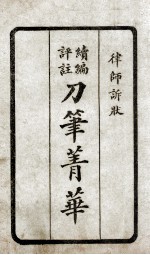 律師訴狀
續編
評註
刀筆菁華